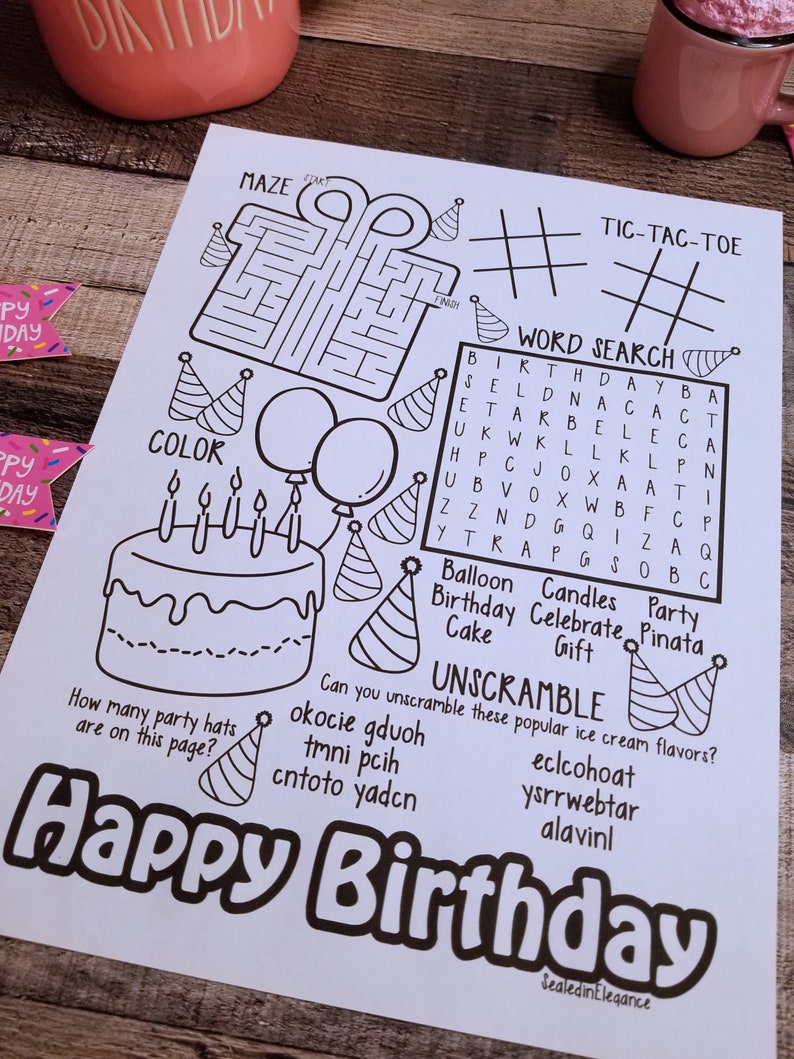 BIRTHDAY
PPY
HDAY
PPY
HDAY
MAZE
START
FINISH
TIC-TAC-TOE
WORD SEARCH
B I R T H D A Y B A
S E L D N A C A C T
E T A R B E L E C A
U K W K L L K L P N
H P C J O X A A T I
U B V O X W B F C P
Z Z N D G Q I Z A Q
Y T R A P G S O B C
Balloon Candles Party
Birthday Celebrate Pinata
Cake Gift
COLOR
How many party hats
are on this page?
UNSCRAMBLE
Can you unscramble these popular ice cream flavors?
okocie gduoh
tmni pcih
cntoto yadcn
eclcohoat
ysrrwebtar
alavinl
Happy Birthday
SealedinElegance